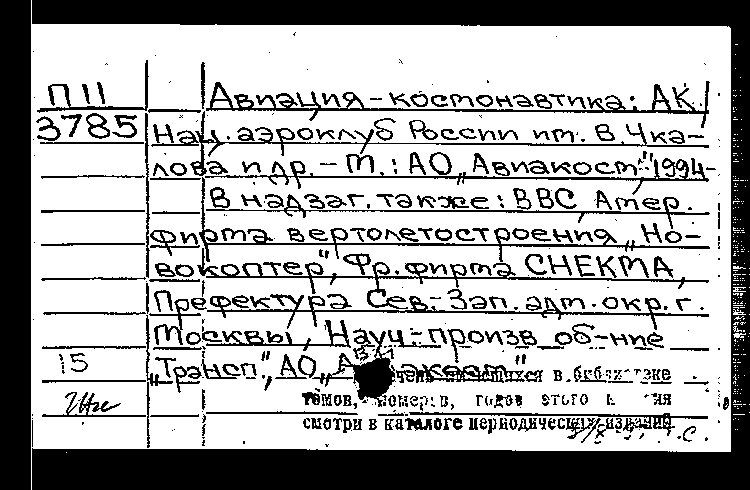 П 11
3785
Авиация-космонавтика: АК/
Нац. аэроклуб России им. В. Чка-
лова и др. - М.: АО „Авиакосм", 1994-
В надзаг. также: ВВС, Амер.
фирма вертолетостроения „Но-
вокоптер", Фр. фирма СНЕКМА,
Префектура Сев.-Зап. адм. окр. г.
Москвы, Науч.-произв об-ние
15
„Трансп.", АО
имеющихся в библиотеке
томов, номеров, годов этого
смотри в каталоге периодических изданий